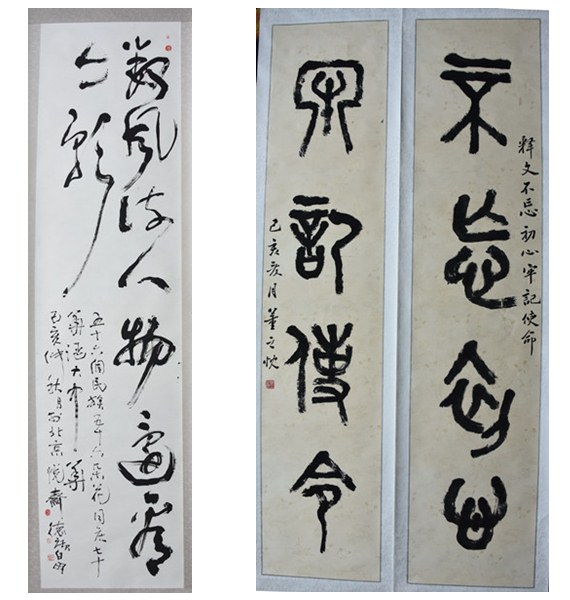 數风流人物還看
今朝
五十六個民族五十六朵花同庆七十
華诞大中華
己亥仲秋月於北京悦齋
释文不忘初心牢記使命
不忘初心
牢記使令
己亥夏月董